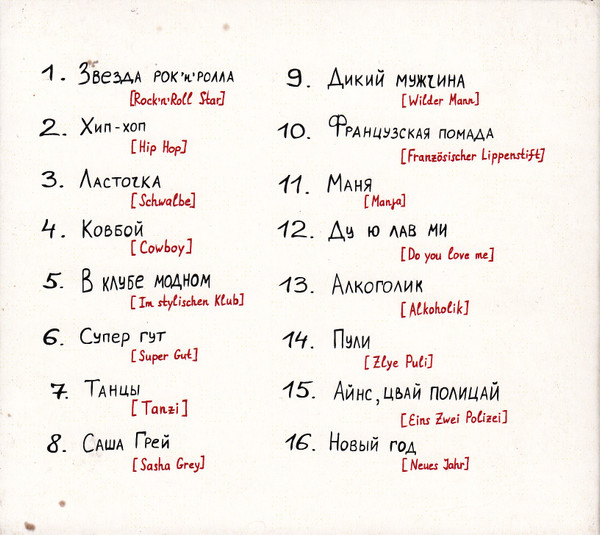 1. Звезда рок'н'ролла
[Rock'n'Roll Star]
2. Хип-хоп
[Hip Hop]
3. Ласточка
[Schwalbe]
4. Ковбой
[Cowboy]
5. В клубе модном
[Im stylischen Klub]
6. Супер гут
[Super Gut]
7. Танцы
[Tanzi]
8. Саша Грей
[Sasha Grey]
9. Дикий мужчина
[Wilder Mann]
10. Французская помада
[Französischer Lippenstift]
11. Маня
[Manja]
12. Ду ю лав ми
[Do you love me]
13. Алкоголик
[Alkoholik]
14. Пули
[Zlye Puli]
15. Айнс, цвай полицай
[Eins Zwei Polizei]
16. Новый год
[Neues Jahr]